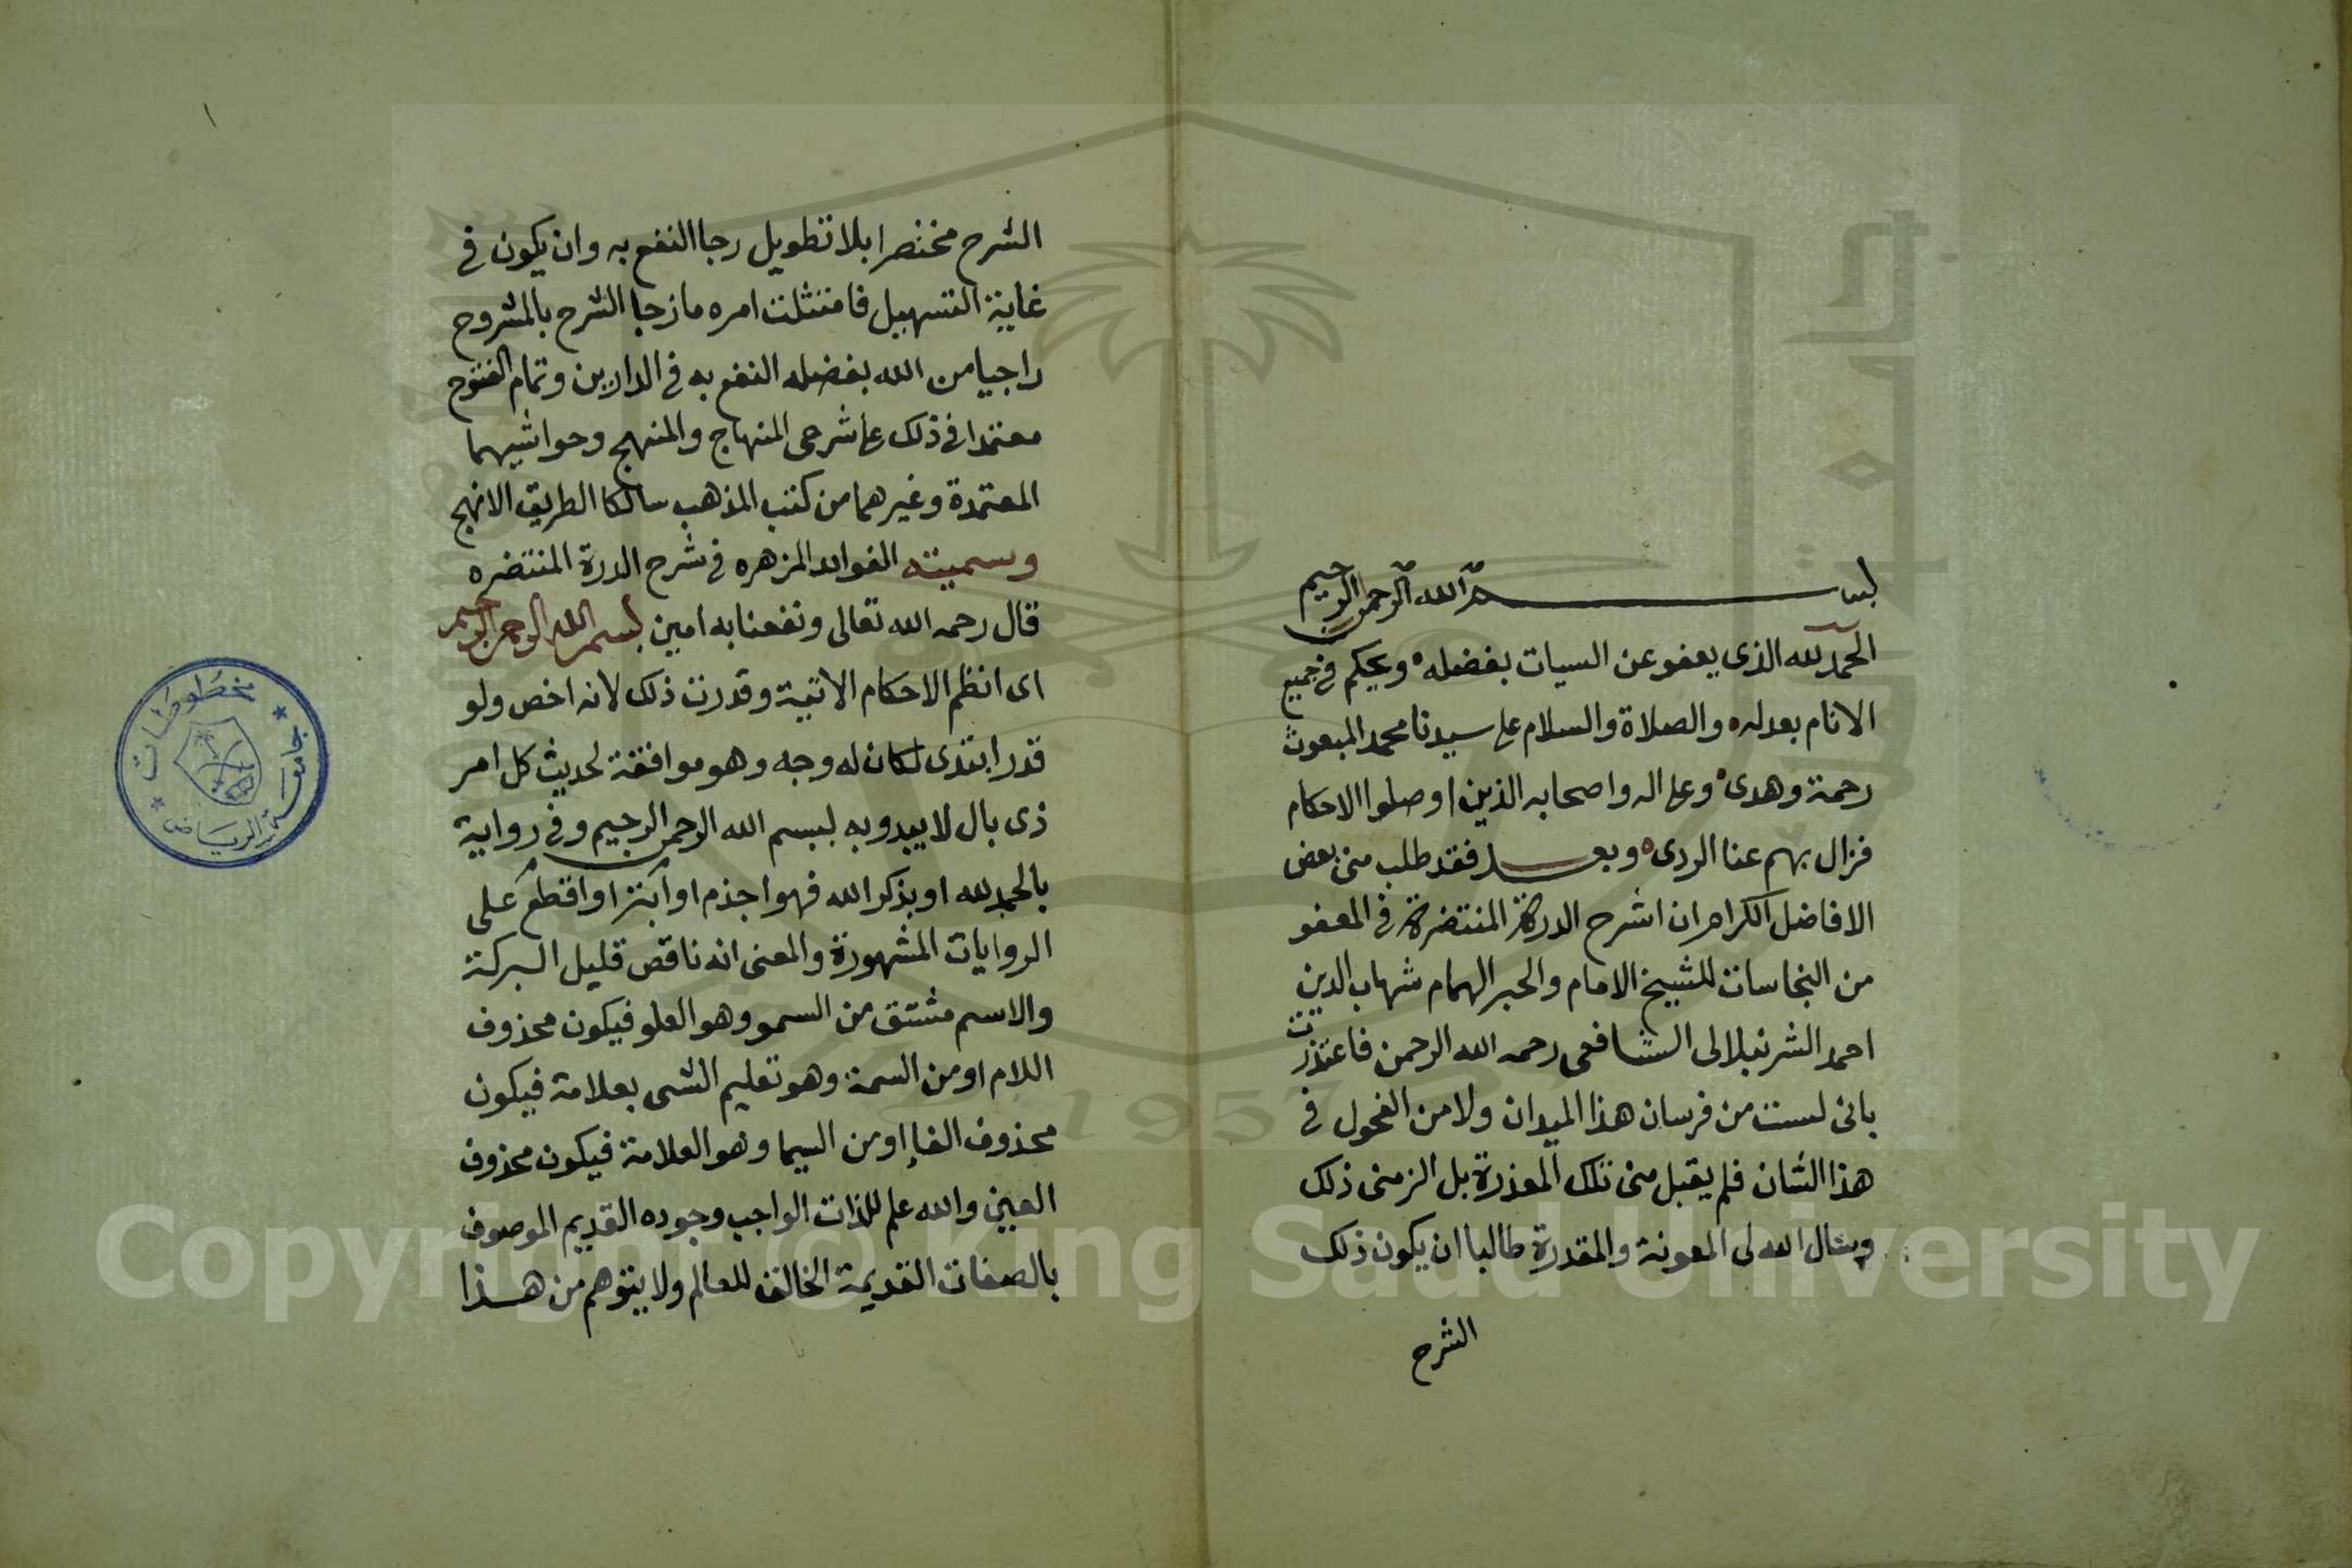 بسم الله الرحمن الرحيم
الحمد لله الذى يعفو عن السيات بفضله ويحكم فى جميع
الانام بعدله والصلاة والسلام على سيدنا محمد المبعوث
رحمة وهدى وعلى اله واصحابه الذين اوصلوا الاحكام
فزال بهم عنا الردى وبعد فقد طلب منى بعض
الافاضل الكرام ان اشرح الدرة المنتضرة فى المعفو
من النجاسات للشيخ الامام والحبر الهمام شهاب الدين
احمد الشرنبلالى الشافعى رحمه الله الرحمن فاعتذرت
بانى لست من فرسان هذا الميدان ولا من الفحول فى
هذا الشان فلم يقبل منى تلك المعذرة بل الزمنى ذلك
وسال الله لى المعونة والمقدرة طالبا ان يكون ذلك
الشرح
الشرح مختصرا بلا تطويل رجا النفع به وان يكون فى
غاية التسهيل فامتثلت امره مازجا الشرح بالمشروح
راجيا من الله بفضله النفع به فى الدارين وتمام الفتوح
معتمدا فى ذلك على شرحى المنهاج والمنهج وحواشيهما
المعتمدة وغيرهما من كتب المذهب سالكا الطريق الانهج
وسميته الفوائد المزهره فى شرح الدرة المنتضره
قال رحمه الله تعالى ونفعنا به امين بسم الله الرحمن الرحيم
اى انظم الاحكام الاتية وقدرت ذلك لانه اخص ولو
قدر ابتدى لكان له وجه وهو موافقة لحديث كل امر
ذى بال لا يبدو به ببسم الله الرحمن الرحيم وفى رواية
بالحمد لله او بذكر الله فهو اجذم او ابتر او اقطع على
الروايات المشهورة والمعنى انه ناقص قليل البركة
والاسم مشتق من السمو وهو العلو فيكون محذوف
اللام او من السمة وهو تعليم الشى بعلامة فيكون
محذوف الفاء او من السيما وهو العلامة فيكون محذوف
العين والله علم للذات الواجب وجوده القديم الموصوف
بالصفات القديمة الخالق للعالم ولا يتوهم من هذا
جامعة الرياض
مخطوطات
1957
Copyright © King Saud University